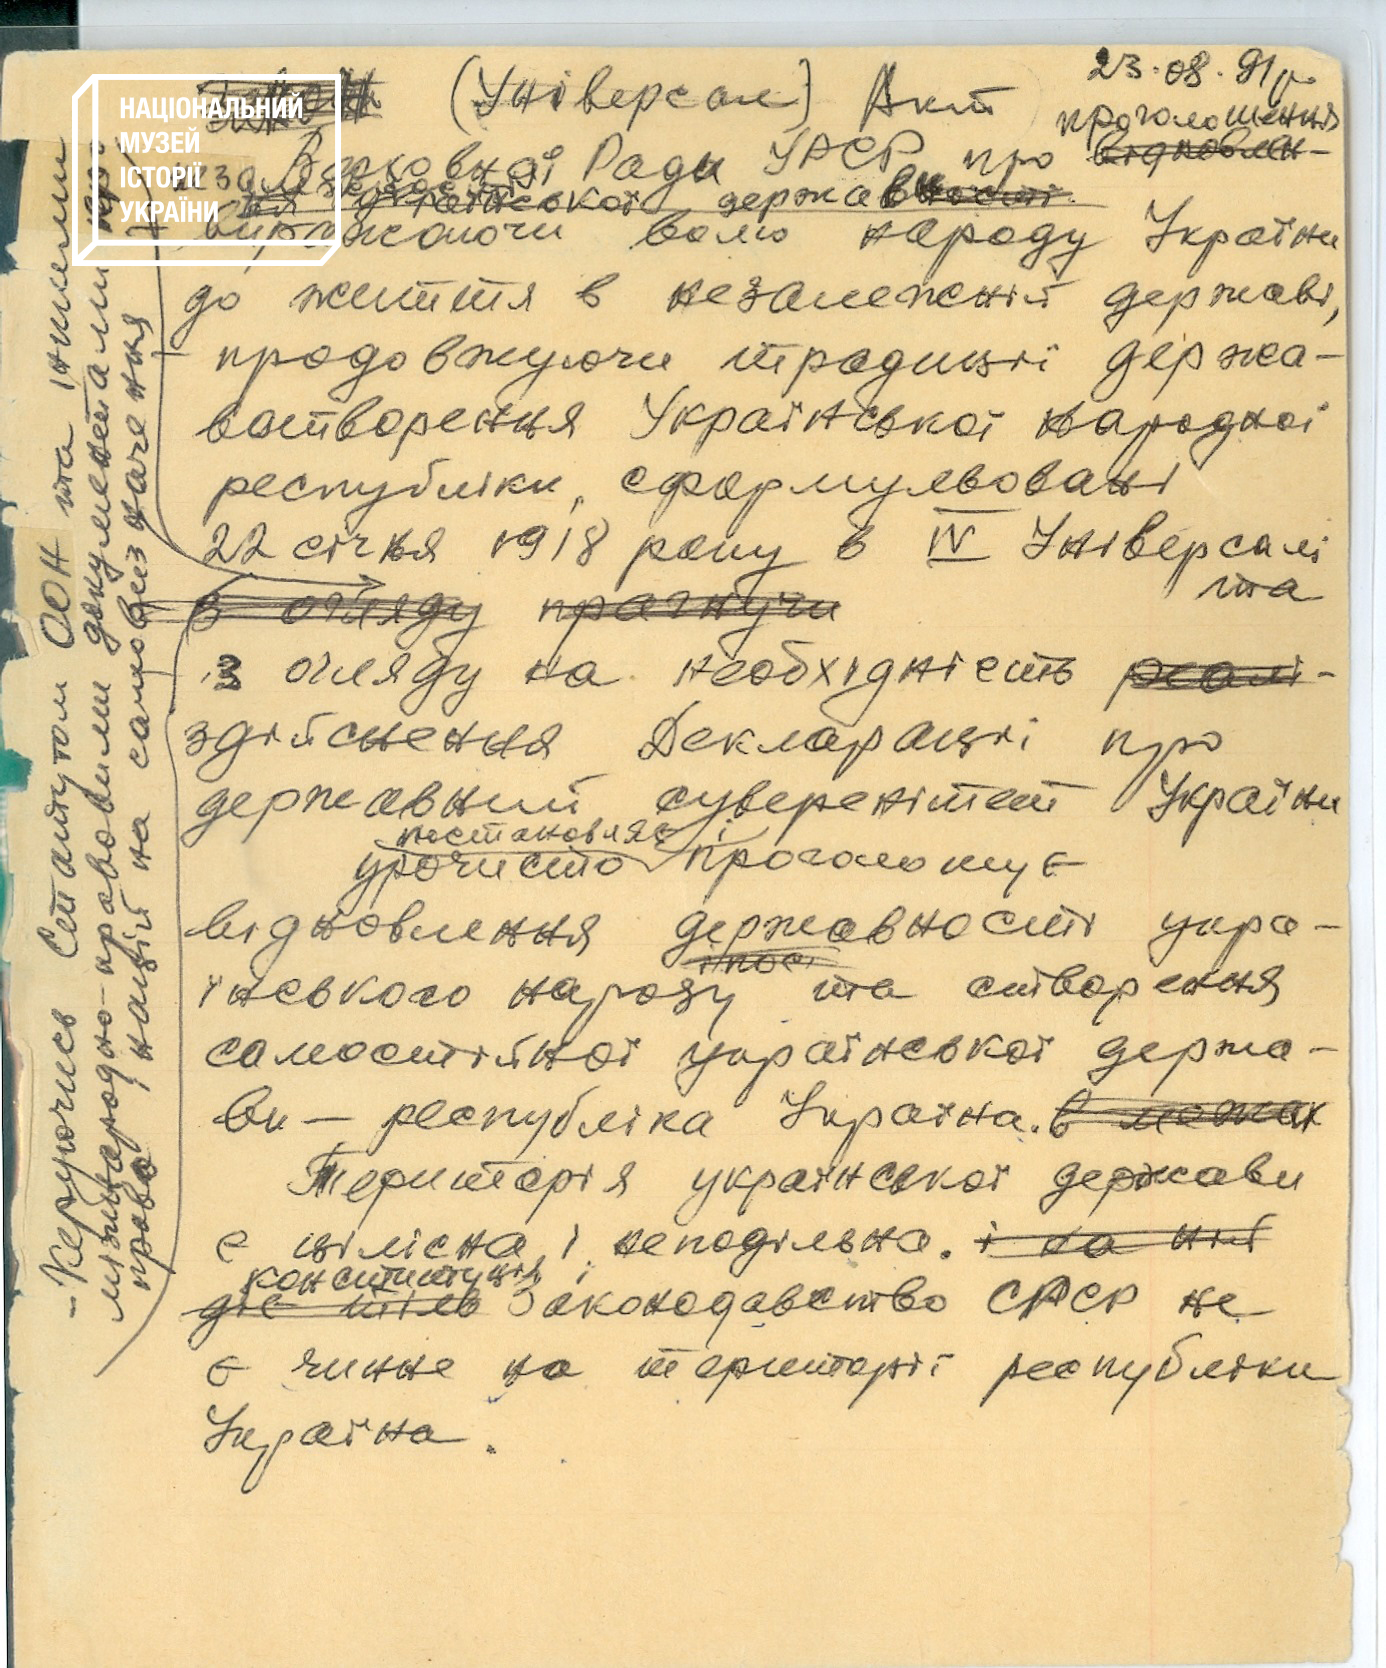 НАЦІОНАЛЬНИЙ
МУЗЕЙ
ІСТОРІЇ
УКРАЇНИ
23.08.91 р.
Закон (Універсал) Акт
проголошення
Верховної Ради УРСР про відновлен-
ня української державності
виражаючи волю народу України
до життя в незалежній державі,
продовжуючи традиції держа-
вотворення Української народної
республіки, сформульовані
22 січня 1918 року в IV Універсалі
та
з огляду прагнучи
з огляду на необхідність реалі-
здійснення Декларації про
державний суверенітет України
постановляє і
урочисто проголошує
відновлення державності укра-
їнського народу та створення
самостійної української держа-
ви – республіка Україна. в межах
Територія української держави
є цілісна і неподільна. і на ній
конституція і
діє тільв Законодавство СРСР не
є чинне на території республіки
Україна.
– Керуючись Статутом ООН та іншими
міжнародно-правовими документами про
право націй на самовизначення